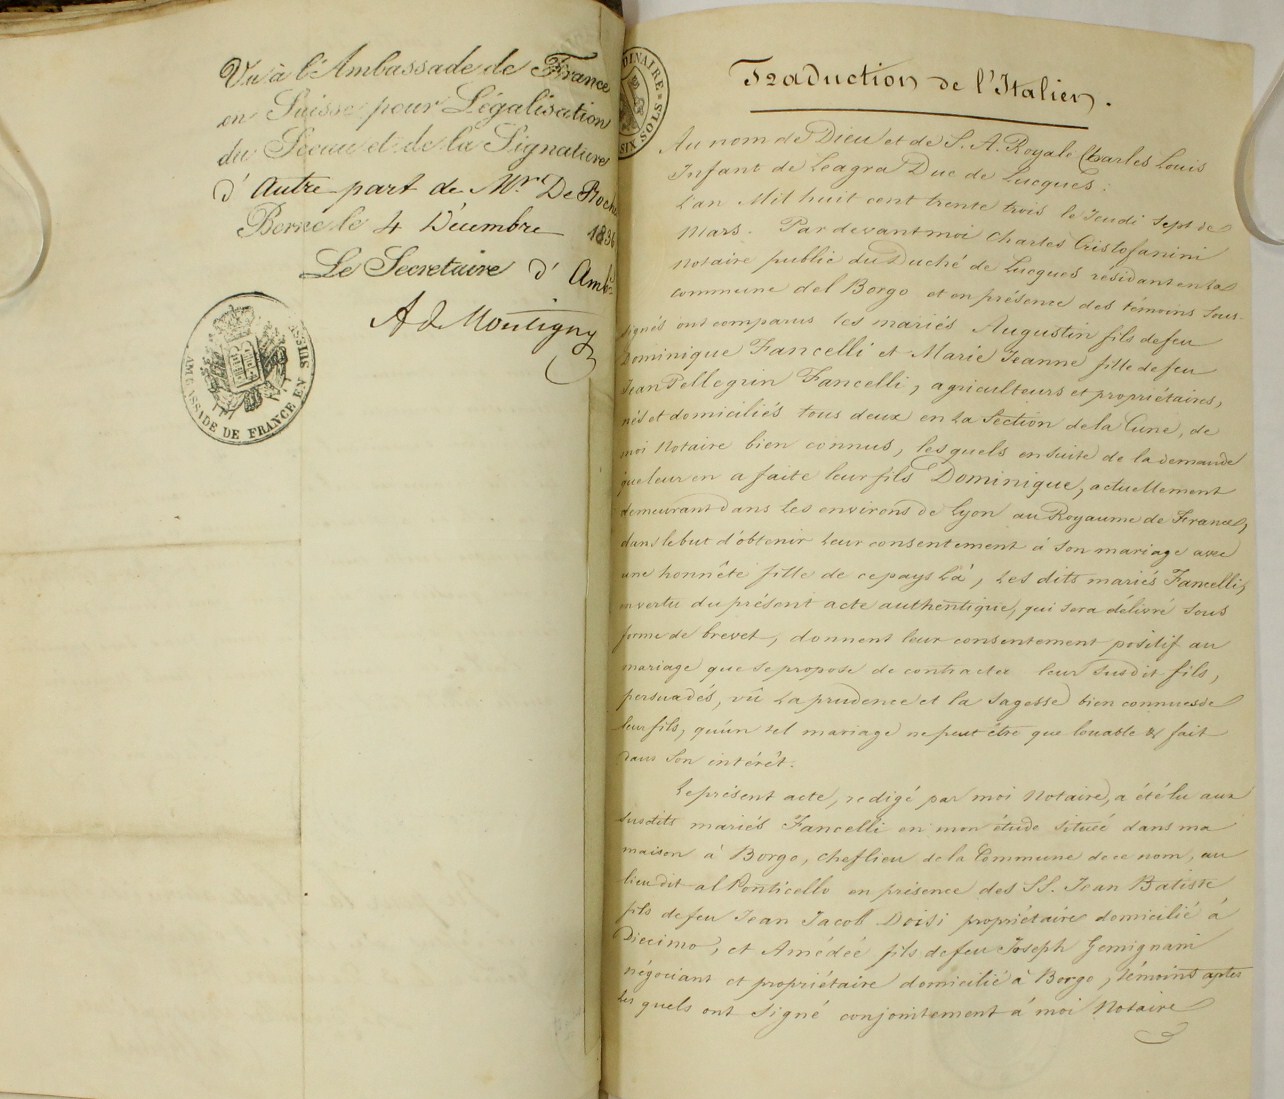 Vu à l'Ambassade de France
en Suisse pour Légalisation
du Sceau et de la Signature
d'autre part de Mr. De Roch
Berne le 4 Décembre 1836
Le Secretaire d'Amb
A de Montigny
AMBASSADE DE FRANCE EN SUISSE
DINAIRE SIX SOLS
Traduction de l'Italien.
Au nom de Dieu et de S. A. Royale Charles Louis
Infant de Leagra Duc de Lucques:
L'an Mil huit cent trente trois le Jeudi Sept de
Mars. Par devant moi Charles Cristofanini
Notaire public du Duché de Lucques résidant en la
Commune del Borgo et en présence des témoins sous-
signés ont comparus les mariés Augustin fils de feu
Dominique Fancelli et Marie Jeanne fille de feu
Jean Pellegrin Fancelli, agriculteurs et propriétaires,
nés et domiciliés tous deux en la Section de la Cune, de
moi Notaire bien connus, lesquels ensuite de la demande
que leur en a faite leur fils Dominique, actuellement
demeurant dans les environs de Lyon au Royaume de France,
dans le but d'obtenir leur consentement à son mariage avec
une honnête fille de ce pays là, les dits mariés Fancelli,
en vertu du présent acte authentique, qui sera délivré sous
forme de brevet, donnent leur consentement positif au
mariage que se propose de contracter leur susdit fils,
persuadés, vû la prudence et la sagesse bien connues de
leur fils, qu'un tel mariage ne peut être que louable & fait
dans son intérêt.
Le présent acte, redigé par moi Notaire, a été lu aux
susdits mariés Fancelli en mon étude située dans ma
maison à Borgo, chef lieu de la Commune de ce nom, au
lieu dit al Ponticello en présence des SS. Jean Batiste
fils de feu Jean Jacob Doisi propriétaire domicilié à
Diecimo, et Amédée fils de feu Joseph Gemignani
négociant et propriétaire domicilié à Borgo, témoins aptes
les quels ont signé conjointement à moi Notaire